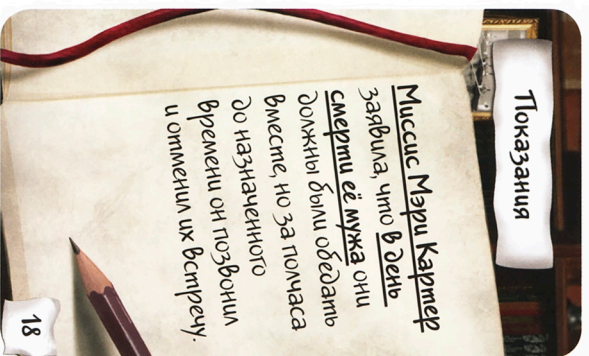 Показания
Миссис Мэри Картер
заявила, что в день
смерти её мужа они
должны были обедать
вместе, но за полчаса
до назначенного
времени он позвонил
и отменил их встречу.
18